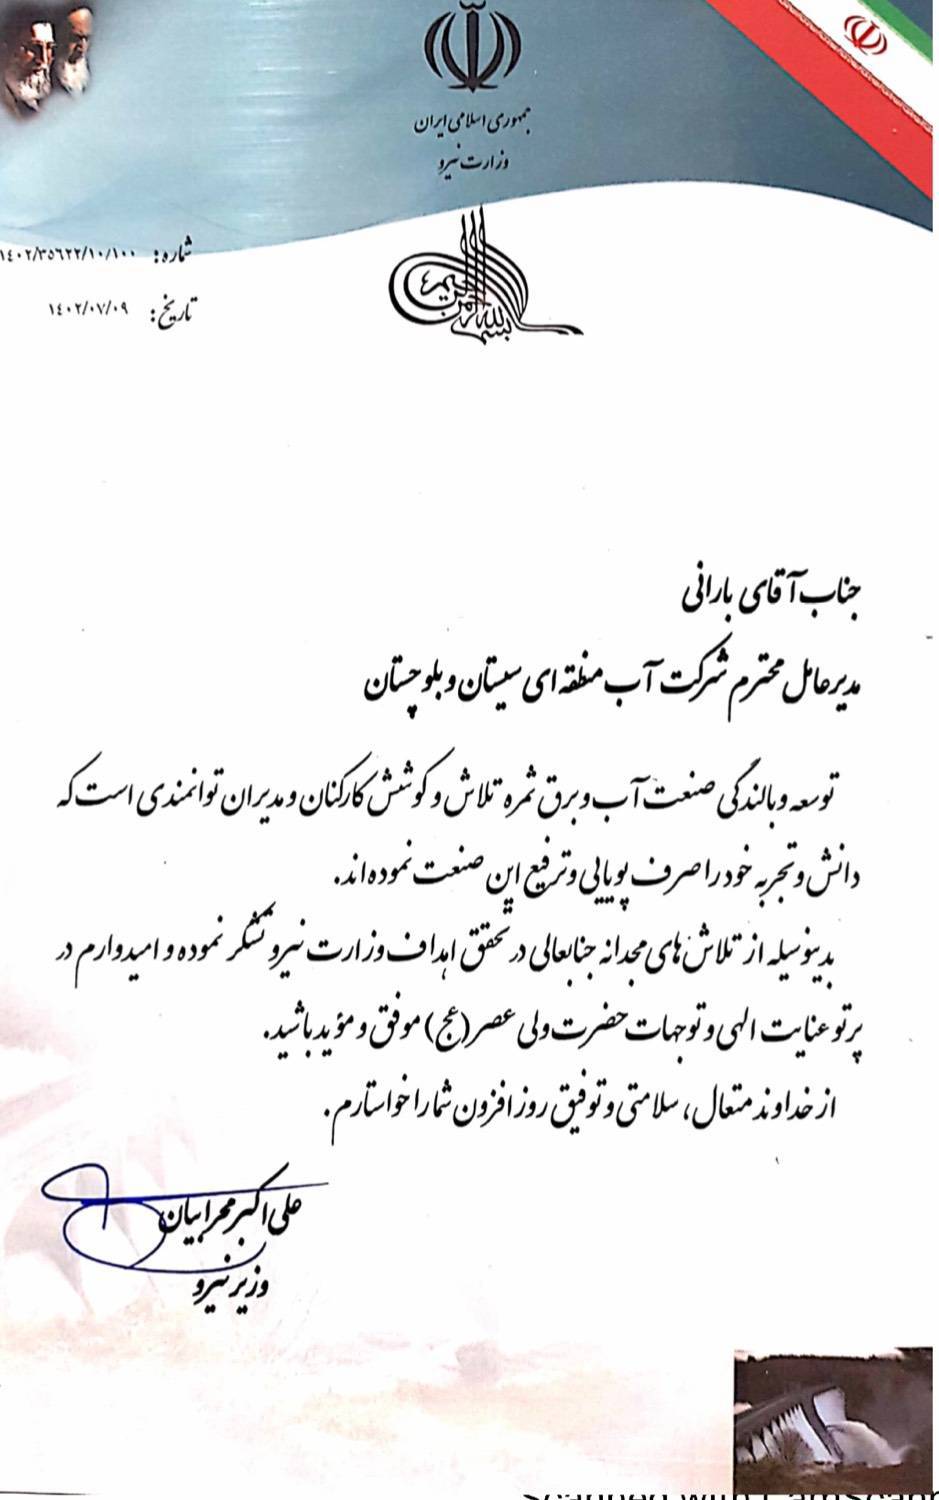 جمهوری اسلامی ایران
وزارت نیرو
بسم الله الرحمن الرحیم
شماره: ۱۴۰۲/۳۵۶۲۲/۱۰/۱۰۰
تاریخ: ۱۴۰۲/۰۷/۰۹
جناب آقای بارانی
مدیرعامل محترم شرکت آب منطقه ای سیستان و بلوچستان
توسعه و بالندگی صنعت آب و برق ثمره تلاش و کوشش کارکنان و مدیران توانمندی است که
دانش و تجربه خود را صرف پویایی و ترفیع این صنعت نموده‌اند.
بدینوسیله از تلاش‌های مجدانه جنابعالی در تحقق اهداف وزارت نیرو تشکر نموده و امیدوارم در
پرتو عنایت الهی و توجهات حضرت ولی عصر (عج) موفق و مؤید باشید.
از خداوند متعال، سلامتی و توفیق روز افزون شما را خواستارم.
علی اکبر محرابیان
وزیر نیرو
Scanned with CamScanner